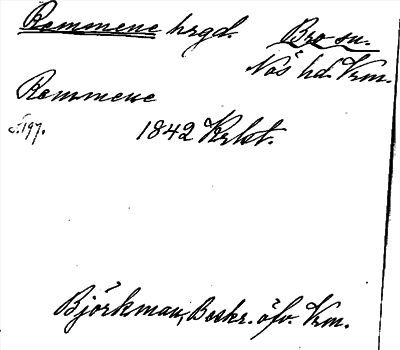 Rommene hrgd. Bro sn.
Näs hd. Vrm.
Rommene
s. 197. 1842 Krbt.
Björkman, Beskr. öfv. Vrm.